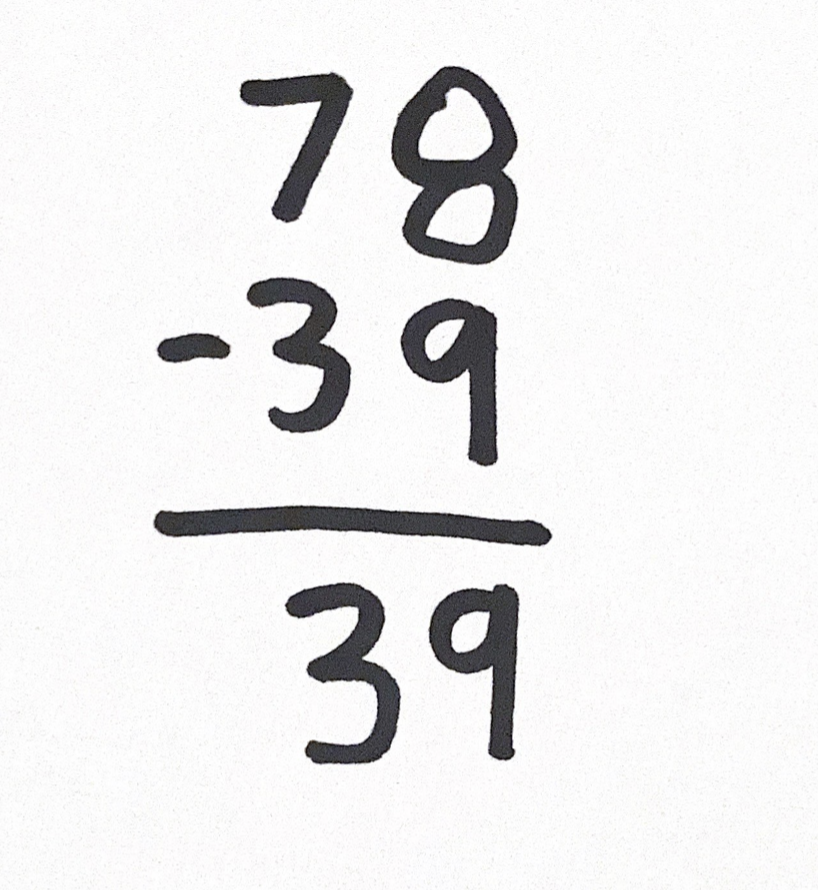 78
-39
39